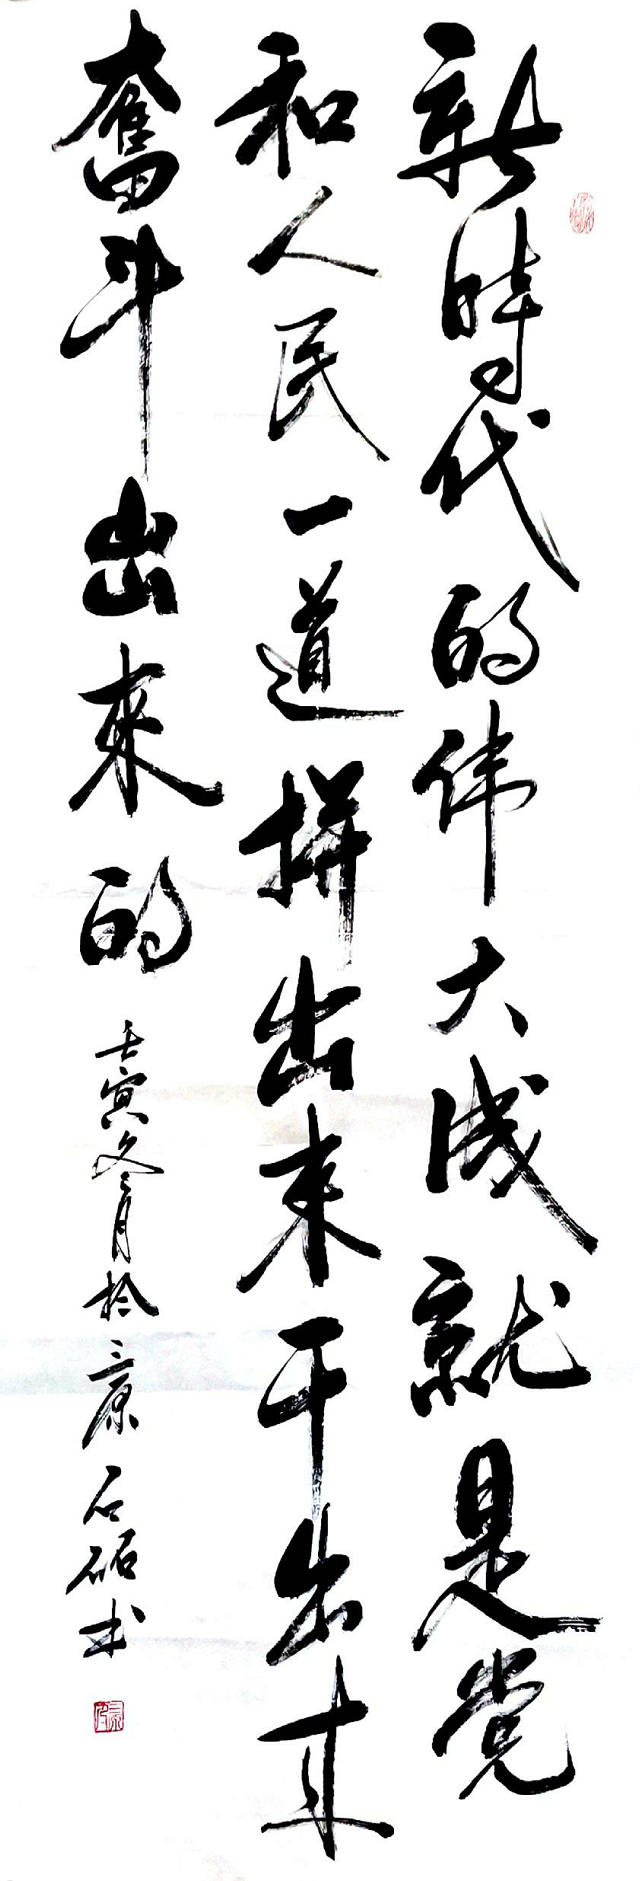 新時代的伟大成就是党
和人民一道拼出来干出来
奮斗出來的
壬寅冬月於三原石砳书